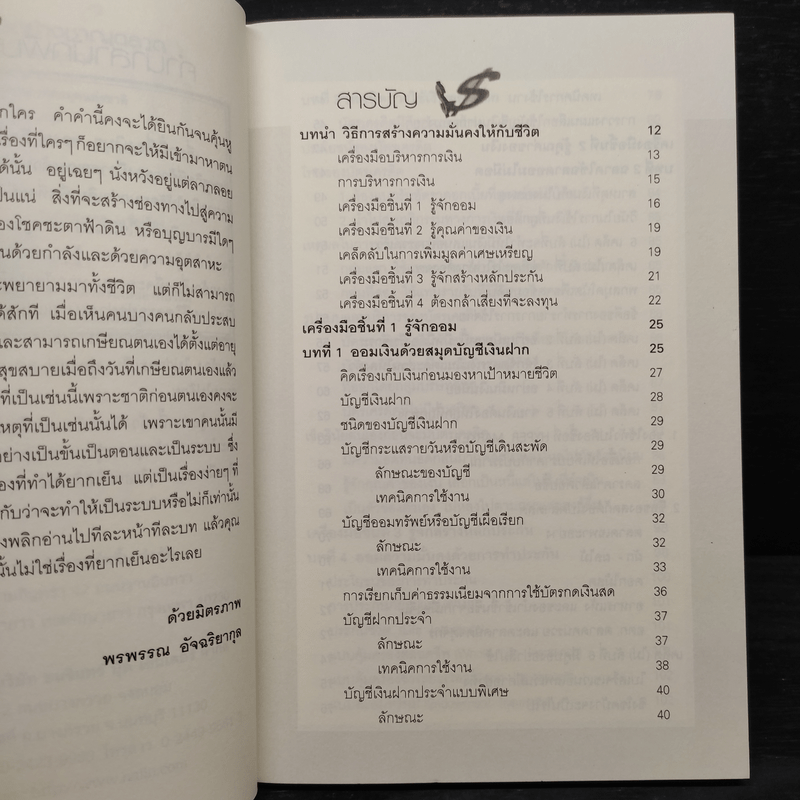 กใคร คำคำนี้คงจะได้ยินกันจนคุ้นหู
รื่องที่ใครๆ ก็อยากจะให้มีเข้ามาหาตน
ด้นั้น อยู่เฉยๆ นั่งหวังอยู่แต่ลาภลอย
ป็นแน่ สิ่งที่จะสร้างช่องทางไปสู่ความ
องโชคชะตาฟ้าดิน หรือบุญบารมีใดๆ
นด้วยกำลังและด้วยความอุตสาหะ
ะพยายามมาทั้งชีวิต แต่ก็ไม่สามารถ
ด้สักที เมื่อเห็นคนบางคนกลับประสบ
และสามารถเกษียณตนเองได้ตั้งแต่อายุ
สุขสบายเมื่อถึงวันที่เกษียณตนเองแล้ว
ที่เป็นเช่นนี้เพราะชาติก่อนตนเองคงจะ
หตุที่เป็นเช่นนั้นได้ เพราะเขาคนนั้นมี
อย่างเป็นขั้นเป็นตอนและเป็นระบบ ซึ่ง
องที่ทำได้ยากเย็น แต่เป็นเรื่องง่ายๆ ที่
กับว่าจะทำให้เป็นระบบหรือไม่ก็เท่านั้น
งพลิกอ่านไปทีละหน้าทีละบท แล้วคุณ
นั้นไม่ใช่เรื่องที่ยากเย็นอะไรเลย
ด้วยมิตรภาพ
พรพรรณ อัจฉริยากุล
สารบัญ
บทนำ วิธีการสร้างความมั่นคงให้กับชีวิต 12
เครื่องมือบริหารการเงิน 13
การบริหารการเงิน 15
เครื่องมือชิ้นที่ 1 รู้จักออม 16
เครื่องมือชิ้นที่ 2 รู้คุณค่าของเงิน 19
เคล็ดลับในการเพิ่มมูลค่าเศษเหรียญ 19
เครื่องมือชิ้นที่ 3 รู้จักสร้างหลักประกัน 21
เครื่องมือชิ้นที่ 4 ต้องกล้าเสี่ยงที่จะลงทุน 22
เครื่องมือชิ้นที่ 1 รู้จักออม 25
บทที่ 1 ออมเงินด้วยสมุดบัญชีเงินฝาก 25
คิดเรื่องเก็บเงินก่อนมองหาเป้าหมายชีวิต 27
บัญชีเงินฝาก 28
ชนิดของบัญชีเงินฝาก 29
บัญชีกระแสรายวันหรือบัญชีเดินสะพัด 29
ลักษณะของบัญชี 29
เทคนิคการใช้งาน 30
บัญชีออมทรัพย์หรือบัญชีเผื่อเรียก 32
ลักษณะ 32
เทคนิคการใช้งาน 33
การเรียกเก็บค่าธรรมเนียมจากการใช้บัตรกดเงินสด 36
บัญชีฝากประจำ 37
ลักษณะ 37
เทคนิคการใช้งาน 38
บัญชีเงินฝากประจำแบบพิเศษ 40
ลักษณะ 40